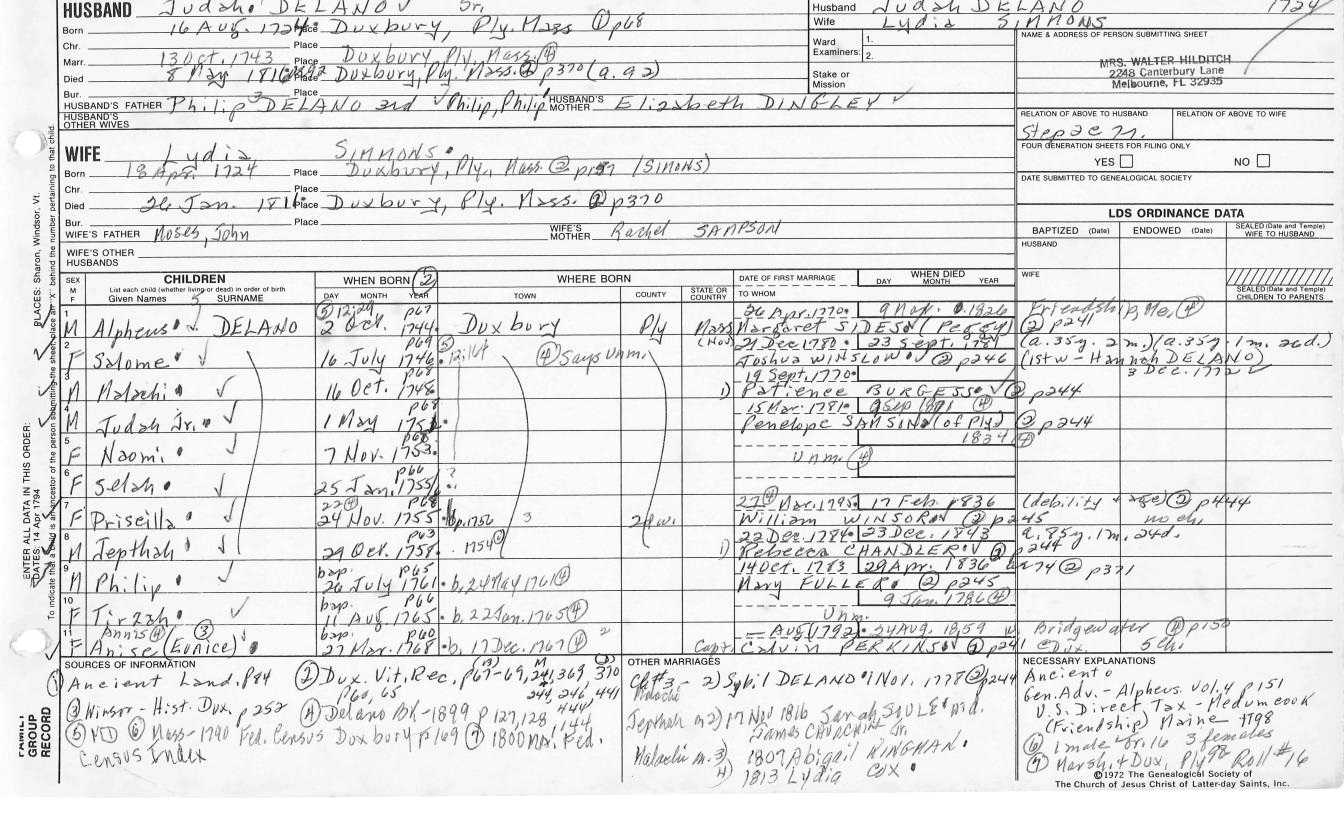 HUSBAND Judah DELANO Sr.
Born 16 Aug. 1724 Place Duxbury, Ply. Mass ① p68
Chr. Place
Marr. 13 Oct. 1743 Place Duxbury, Ply, Mass. ④
Died 8 May 1816 Place Duxbury, Ply. Mass. ② p370 (a. 92)
Bur. Place
HUSBAND'S FATHER Philip DELANO 3rd Philip, Philip HUSBAND'S MOTHER Elizabeth DINGLEY
HUSBAND'S OTHER WIVES
Husband Judah DELANO 1724
Wife Lydia SIMMONS
Ward Examiners: 1.
2.
Stake or Mission
NAME & ADDRESS OF PERSON SUBMITTING SHEET
MRS. WALTER HILDITCH
2248 Canterbury Lane
Melbourne, FL 32935
RELATION OF ABOVE TO HUSBAND RELATION OF ABOVE TO WIFE
FOUR GENERATION SHEETS FOR FILING ONLY
YES NO
DATE SUBMITTED TO GENEALOGICAL SOCIETY
WIFE Lydia SIMMONS
Born 18 Apr. 1724 Place Duxbury, Ply., Mass. ② (SIMONS)
Chr. Place
Died 26 Jan. 1816 Place Duxbury, Ply. Mass. ② p370
Bur. Place
WIFE'S FATHER Moses, John WIFE'S MOTHER Rachel SAMPSON
WIFE'S OTHER HUSBANDS
LDS ORDINANCE DATA
BAPTIZED (Date) ENDOWED (Date) SEALED (Date and Temple) WIFE TO HUSBAND
HUSBAND
WIFE
SEALED (Date and Temple) CHILDREN TO PARENTS
SEX M F
CHILDREN
List each child (whether living or dead) in order of birth
Given Names SURNAME
WHEN BORN ②
DAY MONTH YEAR
WHERE BORN
TOWN COUNTY STATE OR COUNTRY
DATE OF FIRST MARRIAGE
TO WHOM
WHEN DIED
DAY MONTH YEAR
1 p67 26 Apr. 1770 9 Nov. 1826 Friendship, Me. ④
M Alpheus DELANO 2 Oct. 1744 Duxbury Ply Mass Margaret SIDES (Peggy) ② p241
2 p69 ⑤ 21 Dec 1780 23 Sept. (a. 35y. 2 m.) (a. 35y. 1 m. 26d.)
F Salome 16 July 1746 ④ Says Unm. Joshua WINSLOW ② p246 (1st w - Hannah DELANO)
3 Dec. 1772
3 p68 19 Sept. 1770
M Malachi 16 Oct. 1748 1) Patience BURGESS ② p244
4 p68 15 Mar. 1781 ④
M Judah Jr. 1 May Penelope SAMSON (of Ply) ② p244
5 p68 1834 ④
F Naomi 7 Nov. 1753 Unm. ④
6 p66
F Selah 25 Jan. 1755 ?
7 22④ p68 27④ Mar. 1795 17 Feb. 1836 (debility + age) ② p444
F Priscilla 24 Nov. 1755 bp. 1756 William WINSOR ② p245 no ch.
8 p63 22 Dec. 1784 23 Dec. 1843 a. 85y. 1m. 24d.
M Jepthah 29 Oct. 1758 1) Rebecca CHANDLER ② p244
9 bap. p65 14 Oct. 1783 29 Apr. 1836 ② p371
M Philip 26 July 1761 b. 24 May 1761 ④ Mary FULLER ② p245
10 bap. p66 9 Jan. 1786 ④
F Tirzah 11 Aug. 1765 b. 22 Jan. 1765 ④ Unm.
11 Annis ④ ③ bap. p60 Aug 1792 24 Aug. 1859 Bridgewater p150
F Anise (Eunice) 27 Mar. 1768 b. 17 Dec. 1767 ④ Capt. Calvin PERKINS ② p241 5 ch.
SOURCES OF INFORMATION
① Ancient Land. p84 ② Dux. Vit. Rec. p67-69, 241, 369, 370
p60, 65 244, 246, 441
444
③ Winsor - Hist. Dux. p252 ④ Delano BK - 1899 p 127, 128, 144
⑥ Mass - 1790 Fed. Census Duxbury p169 ⑦ 1800 Ma. Fed.
Census Index
OTHER MARRIAGES
Ch #3 - 2) Sybil DELANO 1 Nov. 1778 ② p244
Malachi
Jepthah m 2) 17 Nov 1816 Sarah SOULE wid.
James CHURCHILL Jr.
Malachi m. 3) 1807 Abigail WINGMAN.
4) 1813 Lydia COX
NECESSARY EXPLANATIONS
Ancient
Gen. Adv. - Alpheus Vol. 4 p 151
U.S. Direct Tax - Medumcook
(Friendship) Maine 1798
⑥ 1 male 3 females
⑦ Marsh. + Dux, Ply Roll #16
©1972 The Genealogical Society of
The Church of Jesus Christ of Latter-day Saints, Inc.
FAMILY GROUP RECORD
ENTER ALL DATA IN THIS ORDER:
DATES: 14 Apr 1794
PLACES: Sharon, Windsor, Vt.
To indicate that a child is an ancestor of the person submitting the sheet, place an "X" behind the number pertaining to that child.